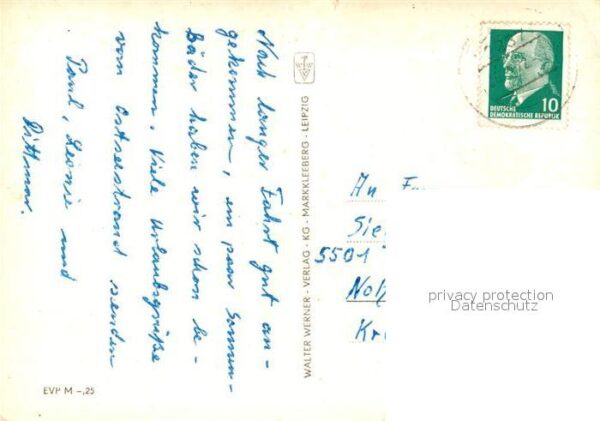 Nach langer Fahrt gut an-
gekommen, ein paar Sonnen-
Bäder haben wir schon be-
kommen. Viele Urlaubsgrüße
vom Ostseestrand senden
Paul, Leonie und
Dittmar.
EVP M -,25
WALTER WERNER - VERLAG - KG - MARKKLEEBERG - LEIPZIG
DEUTSCHE
DEMOKRATISCHE REPUBLIK
10
An
5501
privacy protection
Datenschutz